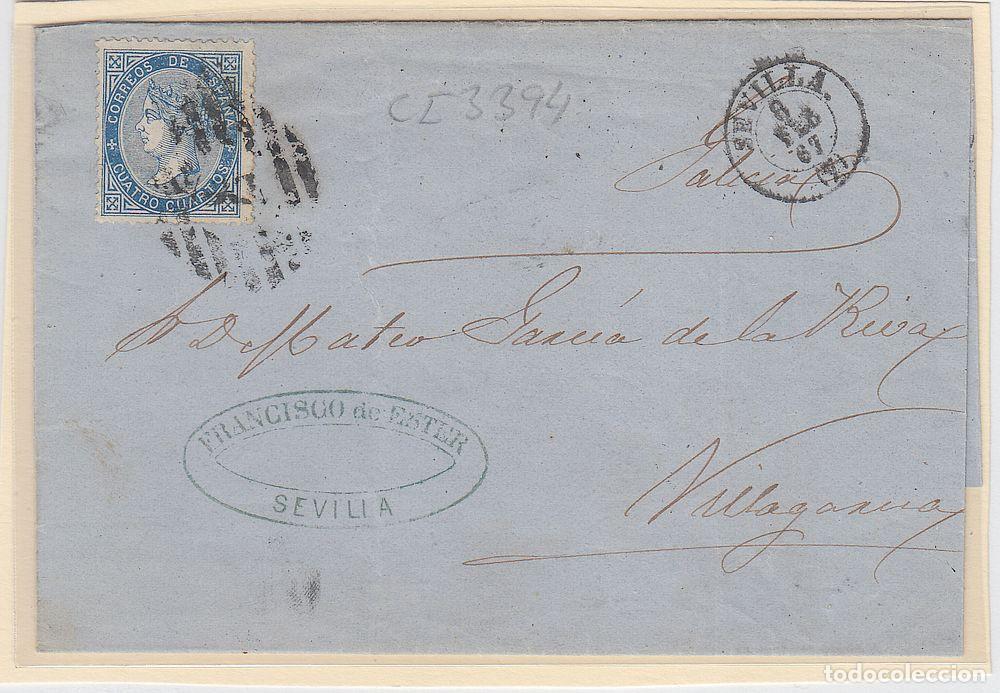 CORREOS DE ESPAÑA
CUATRO CUARTOS
CE3394
SEVILLA.
67
(2)
Galicia
D. Mateo García de la Riva
Villagarcia
FRANCISCO de ESTER
SEVILLA
todocoleccion